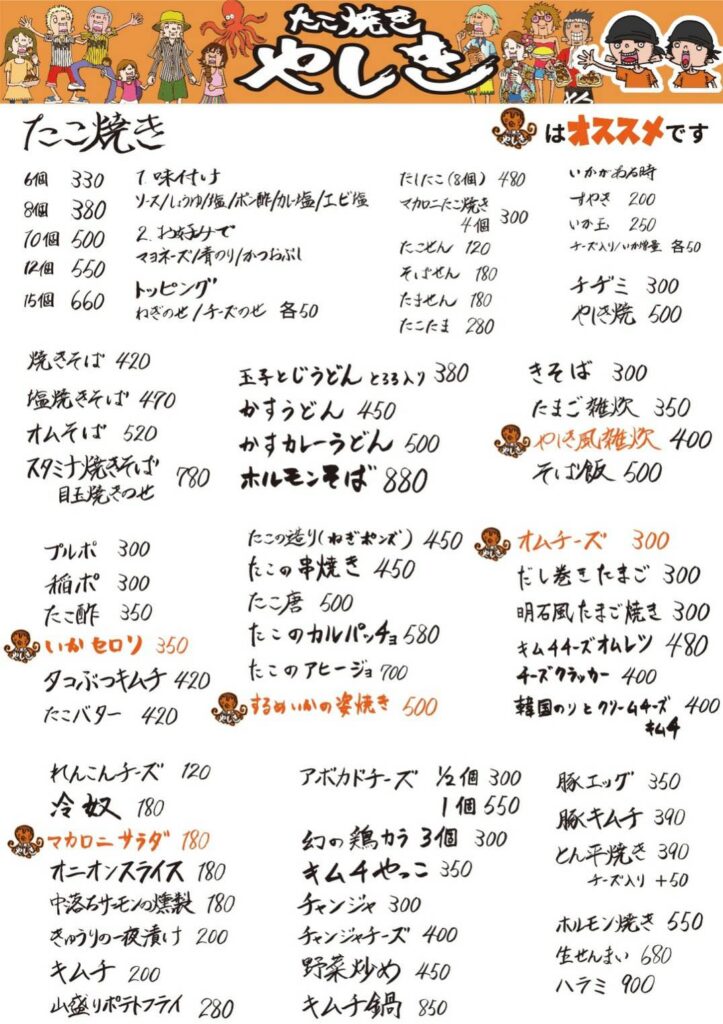 たこ焼き
やしき
たこ焼き
やしき はオススメです
6個 330
8個 380
10個 500
12個 550
15個 660
1.味付け
ソース/しょうゆ/塩/ポン酢/カレー塩/エビ塩
2.お好みで
マヨネーズ/青のり/かつおぶし
トッピング
ねぎのせ/チーズのせ 各50
だしたこ(8個) 480
マカロニたこ焼き
4個 300
たこせん 120
そばせん 180
たません 180
たこたま 280
いかがわる時
すやき 200
いか玉 250
チーズ入り/いか増量 各50
チヂミ 300
やしき焼 500
焼きそば 420
塩焼きそば 470
オムそば 520
スタミナ焼きそば 780
目玉焼きのせ
玉子とじうどん とろろ入り 380
かすうどん 450
かすカレーうどん 500
ホルモンそば 880
きそば 300
たまご雑炊 350
やしき やしき風雑炊 400
そば飯 500
プルポ 300
稲ポ 300
たこ酢 350
やしき いかセロリ 350
タコぶつキムチ 420
たこバター 420
たこの造り(ねぎポンズ) 450
たこの串焼き 450
たこ唐 500
たこのカルパッチョ 580
たこのアヒージョ 700
やしき するめいかの姿焼き 500
やしき オムチーズ 300
だし巻きたまご 300
明石風たまご焼き 300
キムチチーズオムレツ 480
チーズクラッカー 400
韓国のりとクリームチーズ 400
キムチ
れんこんチーズ 120
冷奴 180
やしき マカロニサラダ 180
オニオンスライス 180
中落ちサーモンの燻製 180
きゅうりの一夜漬け 200
キムチ 200
山盛りポテトフライ 280
アボカドチーズ 1/2個 300
1個 550
幻の鶏カラ 3個 300
キムチやっこ 350
チャンジャ 300
チャンジャチーズ 400
野菜炒め 450
キムチ鍋 850
豚エッグ 350
豚キムチ 390
とん平焼き 390
チーズ入り +50
ホルモン焼き 550
生せんまい 680
ハラミ 900